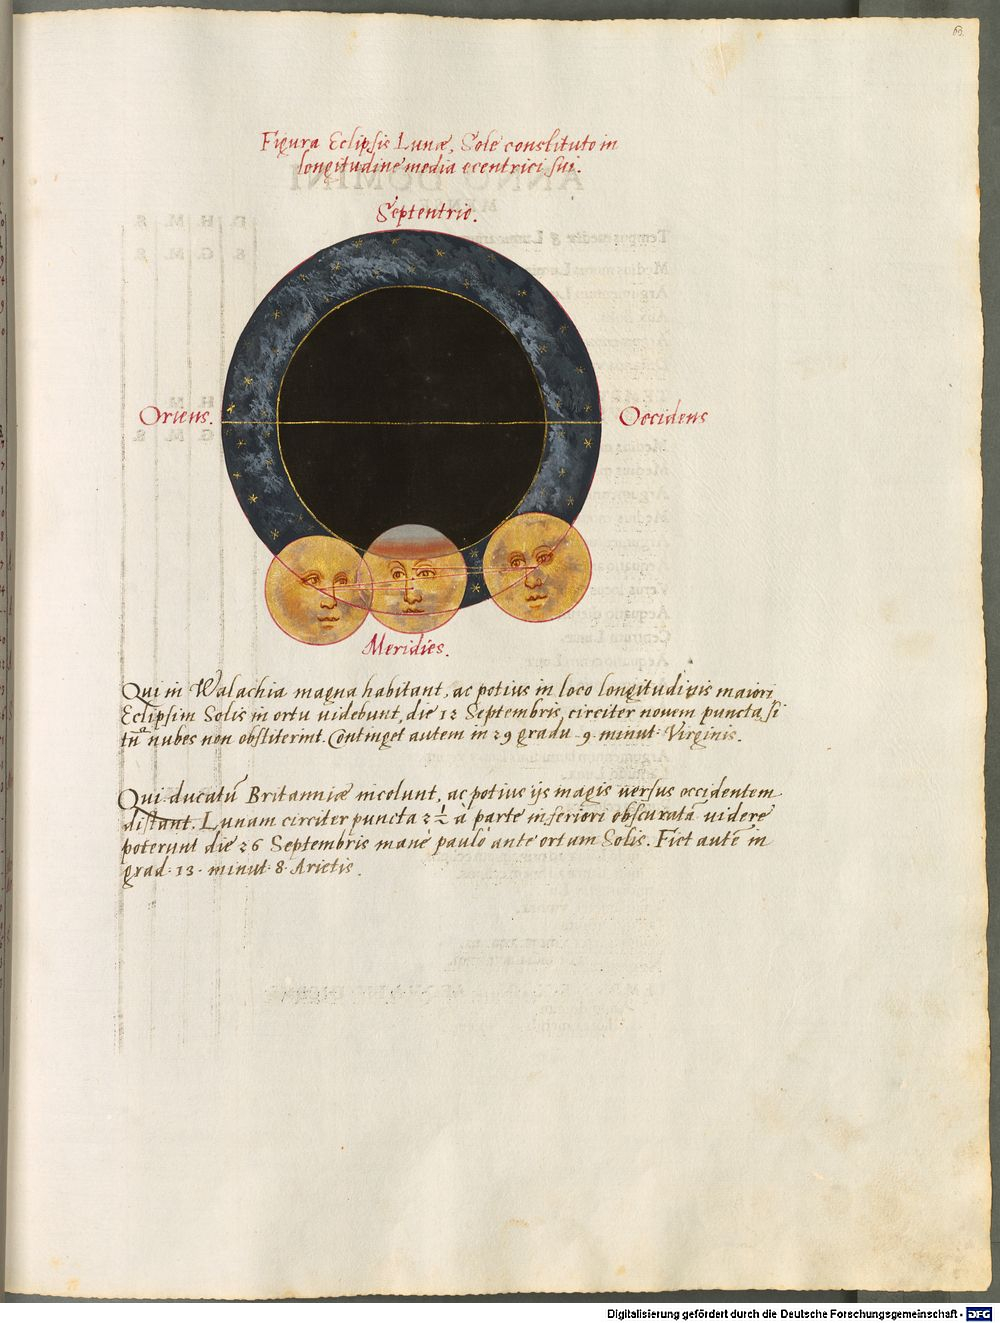 Figura Eclipsis Lunæ, Sole constituto in
longitudine media ecentrici sui.
Septentrio.
Oriens.
Occidens
Meridies.
Qui in Walachia magna habitant, ac potius in loco longitudinis maiori
Eclipsim Solis in ortu uidebunt, die 12 Septembris, circiter nouem puncta, si
tn̄ nubes non obstiterint. Continget autem in 29 gradu 9 minut: Virginis.
Qui ducatū Britanniæ incolunt, ac potius ijs magis uersus occidentem
distant. Lunam circiter puncta 2 1/2 à parte inferiori obscuratā uidere
poterunt die 26 Septembris manè paulò ante ortum Solis. Fiet autē in
grad: 13 minut: 8 Arietis.
Digitalisierung gefördert durch die Deutsche Forschungsgemeinschaft - DFG